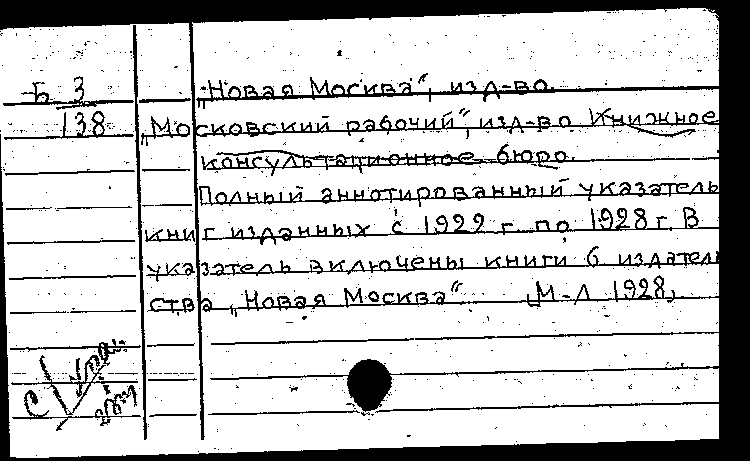 Б 3
138
„Новая Москва“, изд-во.
„Московский рабочий“, изд-во. Книжное
консультационное бюро.
Полный аннотированный указатель
книг изданных с 1922 г. по 1928 г. В
указатель включены книги б издатель
ства „Новая Москва“ М-Л 1928,